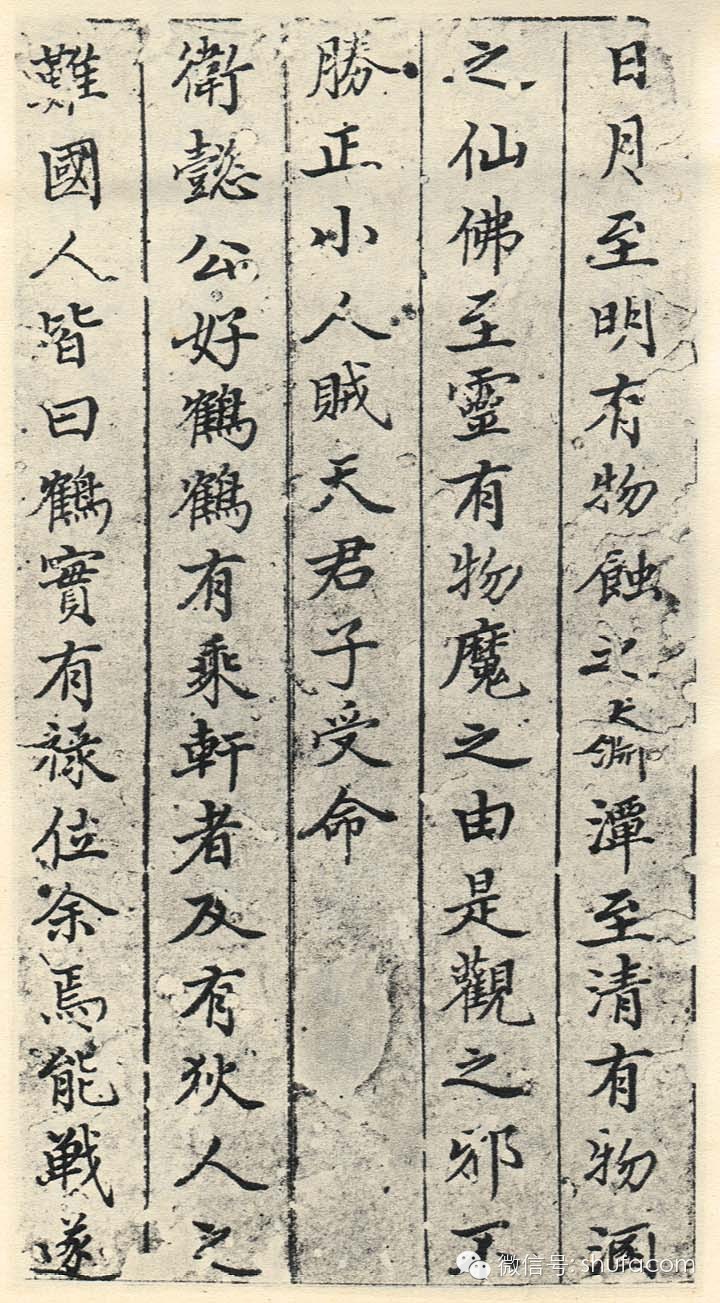 日月至明有物蝕之淵潭至清有物溷
之仙佛至靈有物魔之由是觀之邪不
勝正小人賊天君子受命
衛懿公好鶴鶴有乘軒者及有狄人之
難國人皆曰鶴實有祿位余焉能戰遂
微信号: shufacom